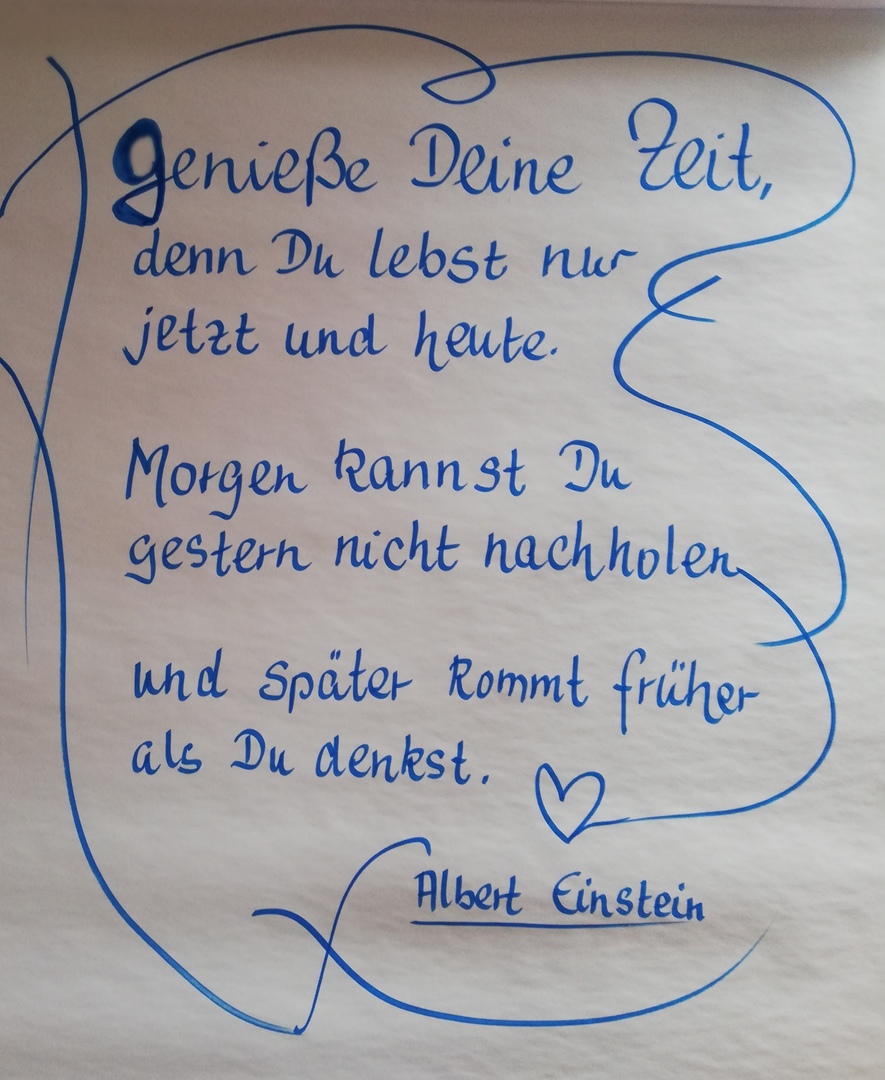 genieße Deine Zeit,
denn Du lebst nur
jetzt und heute.
Morgen kannst Du
gestern nicht nachholen
und später kommt früher
als Du denkst.
Albert Einstein